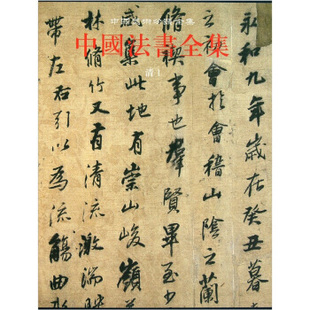 中国美术分类全集
中國法書全集
清1
永和九年歲在癸丑暮
初會於會稽山陰之蘭
脩禊事也羣賢畢至少
咸集此地有崇山峻嶺
林脩竹又有清流激湍映
帶左右引以爲流觴曲水